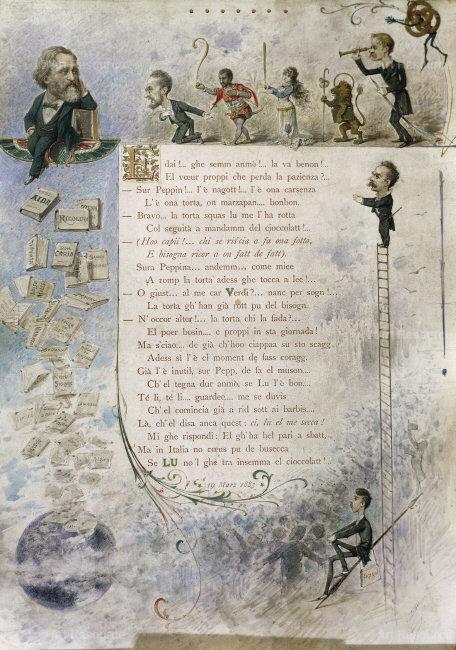 AIDA
RIGOLETTO
E dai!... ghe semm anmò!... la va benon!...
El vœur proppi che perda la pazienza?...
— Sur Peppin!... l'è nagott!... l'è ona carsenza
L'è ona torta, on marzapan.... bonbon.
— Bravo... la torta squas lu me l'ha rotta
Col seguità a mandamm del cioccolatt!...
— (Hoo capii!... chi se ris'cia a fa ona fotta,
E bisogna ricor a on fatt de fatt).
Sura Peppina... andemm... come miee
A romp la torta adess ghe tocca a lee!...
O giust... al me car Verdi?... nanc per sogn!...
La torta gh'han già rott pu del bisogn.
— N'occor alter!... la torta chi la fada?...
El poer bosin.... e proppi in sta giornada!
Ma s'ciao.... de già ch'hoo ciappaa su sto scagg
Adess sì l'è el moment de fass coragg.
Già l'è inutil, sur Pepp, de fa el muson...
Ch'el tegna dur anmò, se Lu l'è bon....
Té lì, té lì.... guardee.... me se duvis
Ch'el comincia già a rid sott ai barbis....
Là, ch'el disa anca quest: ei, lu el me secca!
Mi ghe rispondi: El gh'ha bel pari a sbatt,
Ma in Italia no cœus pu de busecca
Se LU no'l ghe tra insemma el cioccolatt!..
19 Marz 1883